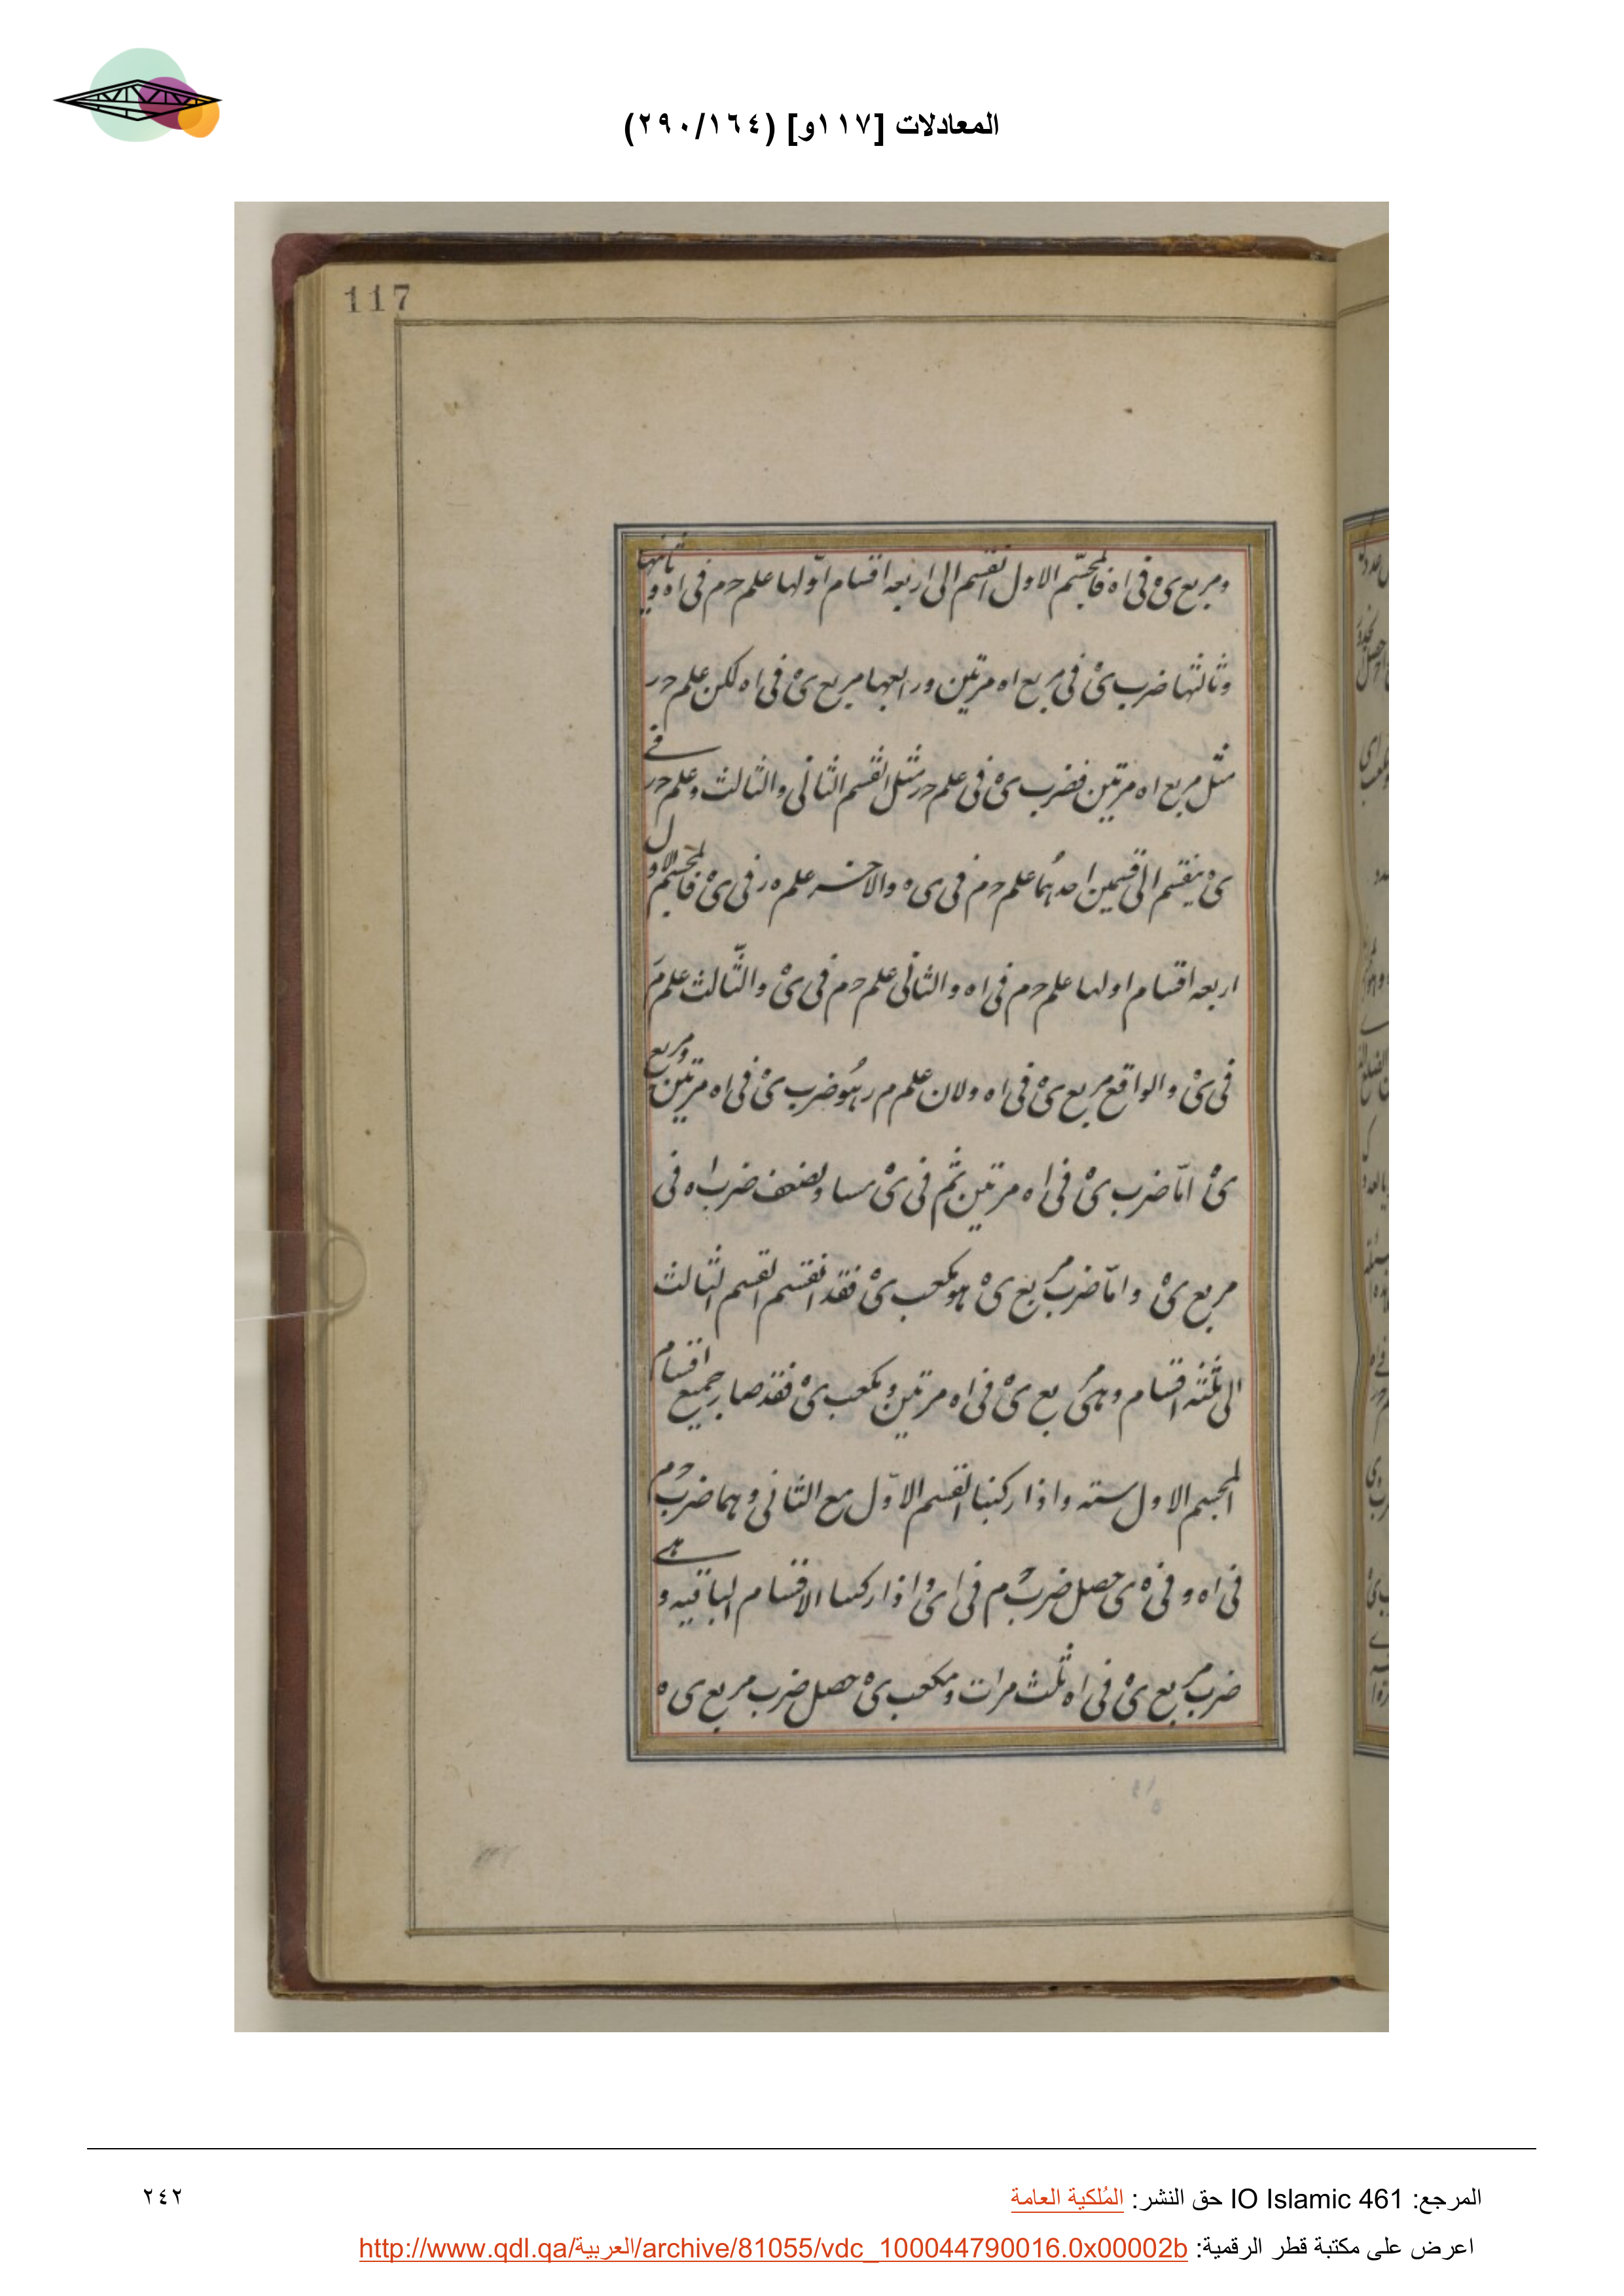 المعادلات [١١٧و] (٢٩٠/١٦٤)
117
ومربع ى ه فى ا ه فالمجسّم الاول انقسم الى اربعه اقسام اوّلها علم حم فى ا ه و ثانيها
وثالثها ضرب ى ه فى مربع ا ه مرتين ورابعها مربع ى ه فى ا ه لكن علم حر
مثل مربع ا ه مرتين فضرب ى ه فى علم حر مثل القسم الثانى والثالث وعلم حر فى
ى ه ينقسم الى قسمين احدهما علم حم فى ى ه والاخر علم ه ر فى ى ه فالمجسم الاول
اربعه اقسام اولها علم حم فى ا ه والثانى علم حم فى ى ه والثالث علم م
فى ى ه والواقع مربع ى ه فى ا ه ولان علم م ر هو ضرب ى ه فى ا ه مرتين ومربع
ى ه امّا ضرب ى ه فى ا ه مرتين ثم فى ى ه مساو لضعف ضرب ا ه فى
مربع ى ه وامّا ضرب مربع ى ه هو مكعب ى ه فقد انقسم القسم الثالث
الى ثلثه اقسام وهى مربع ى ه فى ا ه مرتين ومكعب ى ه فقد صار جميع اقسام
المجسم الاول سته واذا ركبنا القسم الاوّل مع الثانى وهما ضرب حم
فى ا ه و فى ه ى حصل ضرب حم فى ا ى واذا ركبنا الاقسام الباقيه و هى
ضرب مربع ى ه فى ا ه ثلث مرات ومكعب ى ه حصل ضرب مربع ى ه
المرجع: IO Islamic 461 حق النشر: المُلكية العامة
٢٤٢
اعرض على مكتبة قطر الرقمية: http://www.qdl.qa/العربية/archive/81055/vdc_100044790016.0x00002b